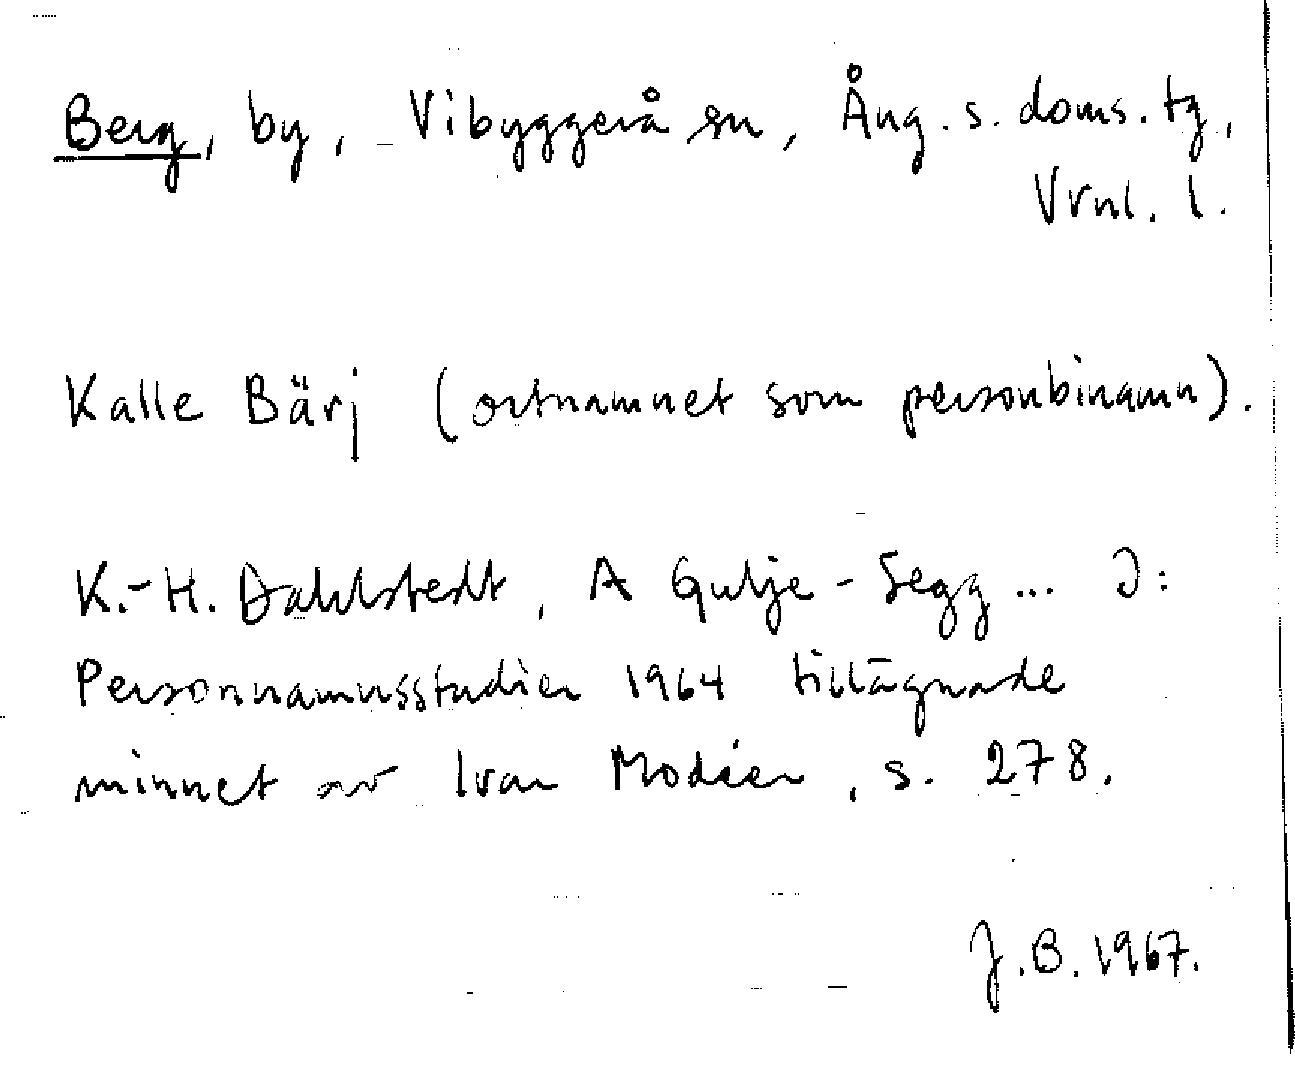 Berg, by, Vibyggerå sn, Ång. s. doms. tg,
Vrnl. l.
Kalle Bärj (ortnamnet som personbinamn).
K.-H. Dahlstedt, A Gulje-Segg... I:
Personnamnsstudier 1964 tillägnade
minnet av Ivar Modéer, s. 278.
J.B. 1967.